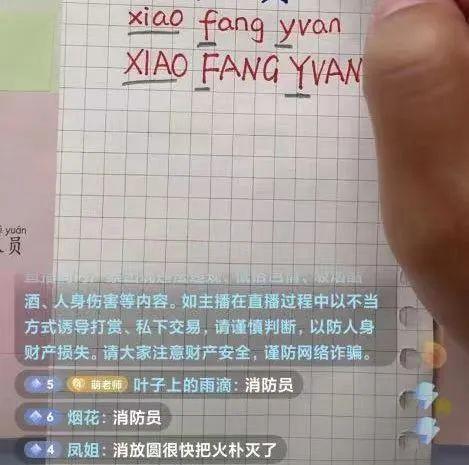 xiao fang yvan
XIAO FANG YVAN
yuán
员
酒、人身伤害等内容。如主播在直播过程中以不当
方式诱导打赏、私下交易，请谨慎判断，以防人身
财产损失。请大家注意财产安全，谨防网络诈骗。
5 萌老师 叶子上的雨滴：消防员
6 烟花：消防员
4 凤姐：消放圆很快把火朴灭了